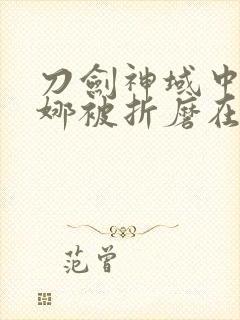 刀劍神域中
娜被折磨在
范曾